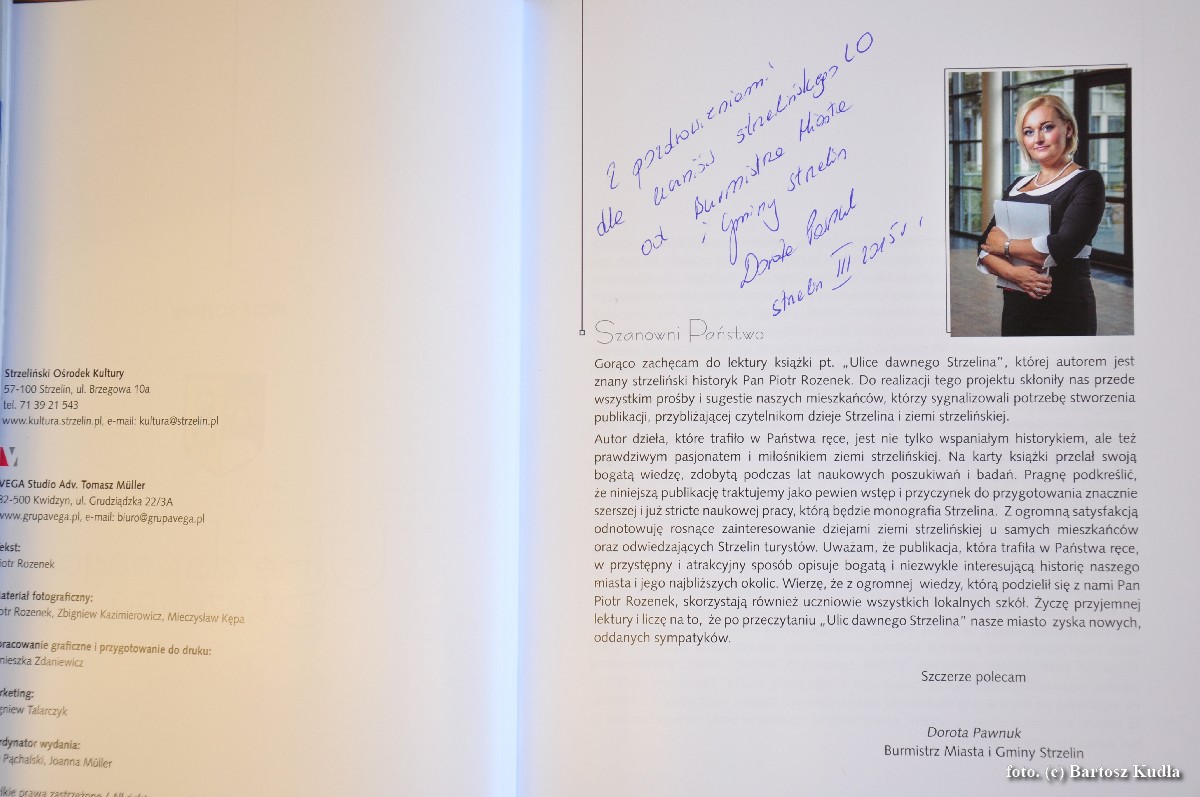 Strzeliński Ośrodek Kultury
57-100 Strzelin, ul. Brzegowa 10a
tel. 71 39 21 543
www.kultura.strzelin.pl, e-mail: kultura@strzelin.pl
VEGA Studio Adv. Tomasz Müller
82-500 Kwidzyn, ul. Grudziądzka 22/3A
www.grupavega.pl, e-mail: biuro@grupavega.pl
ekst:
iotr Rozenek
ateriał fotograficzny:
otr Rozenek, Zbigniew Kazimierowicz, Mieczysław Kępa
pracowanie graficzne i przygotowanie do druku:
nieszka Zdaniewicz
rketing:
gniew Talarczyk
rdynator wydania:
Pąchalski, Joanna Müller
lkie prawa zastrzeżone
Z pozdrowieniami
dla uczniów strzelińskiego LO
od Burmistrza Miasta
i Gminy Strzelin
Dorota Pawnuk
Strzelin III 2015 r.
Szanowni Państwo
Gorąco zachęcam do lektury książki pt. „Ulice dawnego Strzelina”, której autorem jest
znany strzeliński historyk Pan Piotr Rozenek. Do realizacji tego projektu skłoniły nas przede
wszystkim prośby i sugestie naszych mieszkańców, którzy sygnalizowali potrzebę stworzenia
publikacji, przybliżającej czytelnikom dzieje Strzelina i ziemi strzelińskiej.
Autor dzieła, które trafiło w Państwa ręce, jest nie tylko wspaniałym historykiem, ale też
prawdziwym pasjonatem i miłośnikiem ziemi strzelińskiej. Na karty książki przelał swoją
bogatą wiedzę, zdobytą podczas lat naukowych poszukiwań i badań. Pragnę podkreślić,
że niniejszą publikację traktujemy jako pewien wstęp i przyczynek do przygotowania znacznie
szerszej i już stricte naukowej pracy, którą będzie monografia Strzelina. Z ogromną satysfakcją
odnotowuję rosnące zainteresowanie dziejami ziemi strzelińskiej u samych mieszkańców
oraz odwiedzających Strzelin turystów. Uważam, że publikacja, która trafiła w Państwa ręce,
w przystępny i atrakcyjny sposób opisuje bogatą i niezwykle interesującą historię naszego
miasta i jego najbliższych okolic. Wierzę, że z ogromnej wiedzy, którą podzielił się z nami Pan
Piotr Rozenek, skorzystają również uczniowie wszystkich lokalnych szkół. Życzę przyjemnej
lektury i liczę na to, że po przeczytaniu „Ulic dawnego Strzelina” nasze miasto zyska nowych,
oddanych sympatyków.
Szczerze polecam
Dorota Pawnuk
Burmistrz Miasta i Gminy Strzelin
foto. (c) Bartosz Kudla